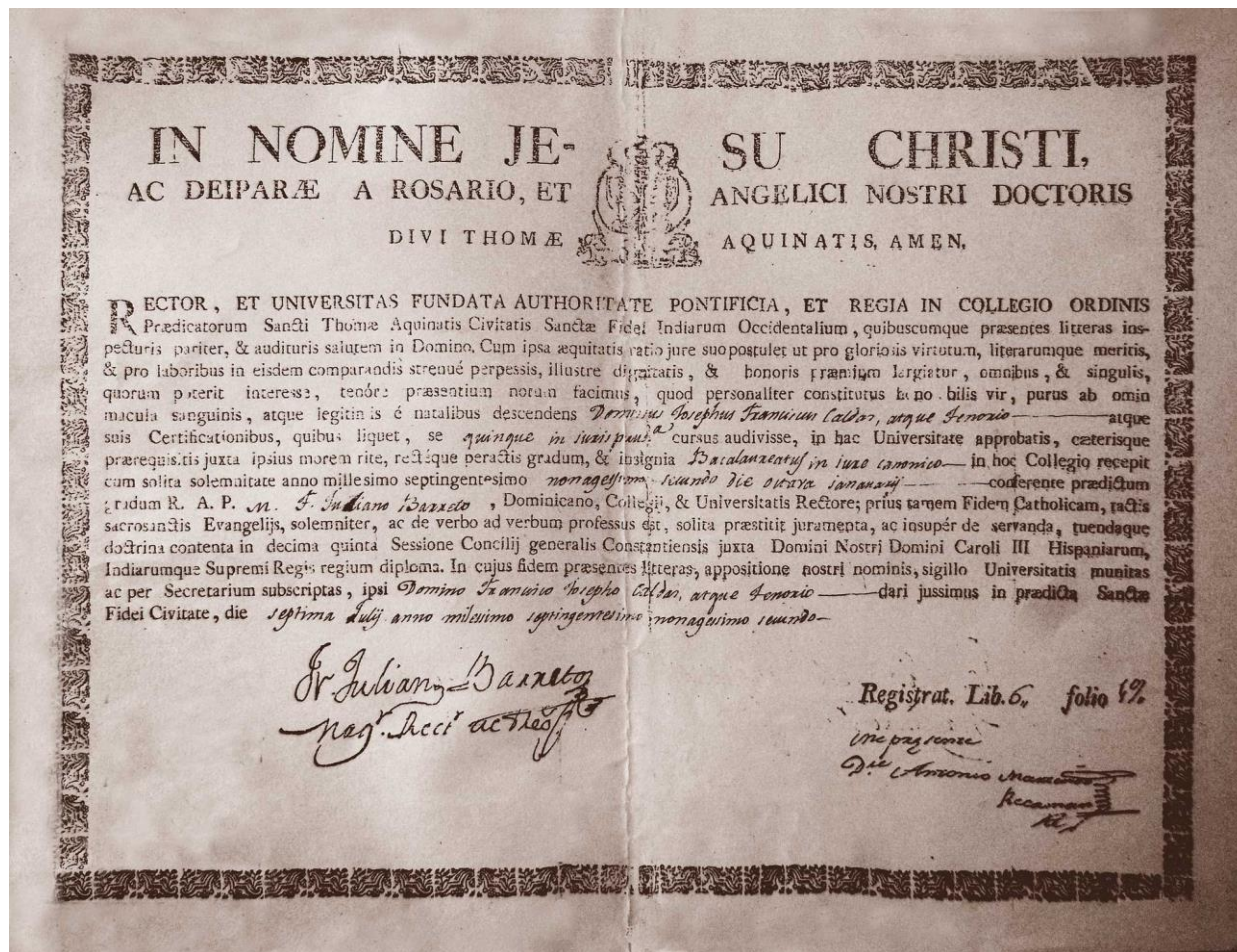 IN NOMINE JE- SU CHRISTI,
AC DEIPARÆ A ROSARIO, ET ANGELICI NOSTRI DOCTORIS
DIVI THOMÆ AQUINATIS, AMEN.
RECTOR, ET UNIVERSITAS FUNDATA AUTHORITATE PONTIFICIA, ET REGIA IN COLLEGIO ORDINIS
Prædicatorum Sancti Thomæ Aquinatis Civitatis Sanctæ Fidei Indiarum Occidentalium, quibuscumque præsentes litteras ins-
pecturis pariter, & audituris salutem in Domino. Cum ipsa æquitatis ratio jure suo postulet ut pro gloriosis virtutum, literarumque meritis,
& pro laboribus in eisdem comparandis strenué perpessis, illustre dignitatis, & honoris præmium largiatur, omnibus, & singulis,
quorum poterit interesse, tenóre præsentium notum facimus, quod personaliter constitutus hono bilis vir, purus ab omin
macula sanguinis, atque legitimis é natalibus descendens Dominus Josephus Franciscus Caldas, atque Tenorio atque
suis Certificationibus, quibus liquet, se quinque in iurisprud.ª cursus audivisse, in hac Universitate approbatis, cæterisque
prærequisitis juxta ipsius morem rite, rectéque peractis gradum, & insignia Bacalaureatus in iure canonico in hoc Collegio recepit
cum solita solemnitate anno millesimo septingentesimo nonagesimo secundo die octava Januarij conferente prædictum
gradum R. A. P. M. F. Juliano Barreto, Dominicano, Collegii, & Universitatis Rectore; prius tamem Fidem Catholicam, tactis
sacrosanctis Evangelijs, solemniter, ac de verbo ad verbum professus est, solita præstitit juramenta, ac insupér de servanda, tuendaque
doctrina contenta in decima quinta Sessione Concilij generalis Constantiensis juxta Domini Nostri Domini Caroli III Hispaniarum,
Indiarumque Supremi Regis regium diploma. In cujus fidem præsentes litteras, appositione nostri nominis, sigillo Universitatis munitas
ac per Secretarium subscriptas, ipsi Domino Francisco Josepho Caldas, atque Tenorio dari jussimus in prædicta Sanctæ
Fidei Civitate, die septima Julij anno milesimo septingentesimo nonagesimo secundo
Fr. Julian Barreto
Mag.r Rect.r
Registrat. Lib. 6, folio 49
Antonio